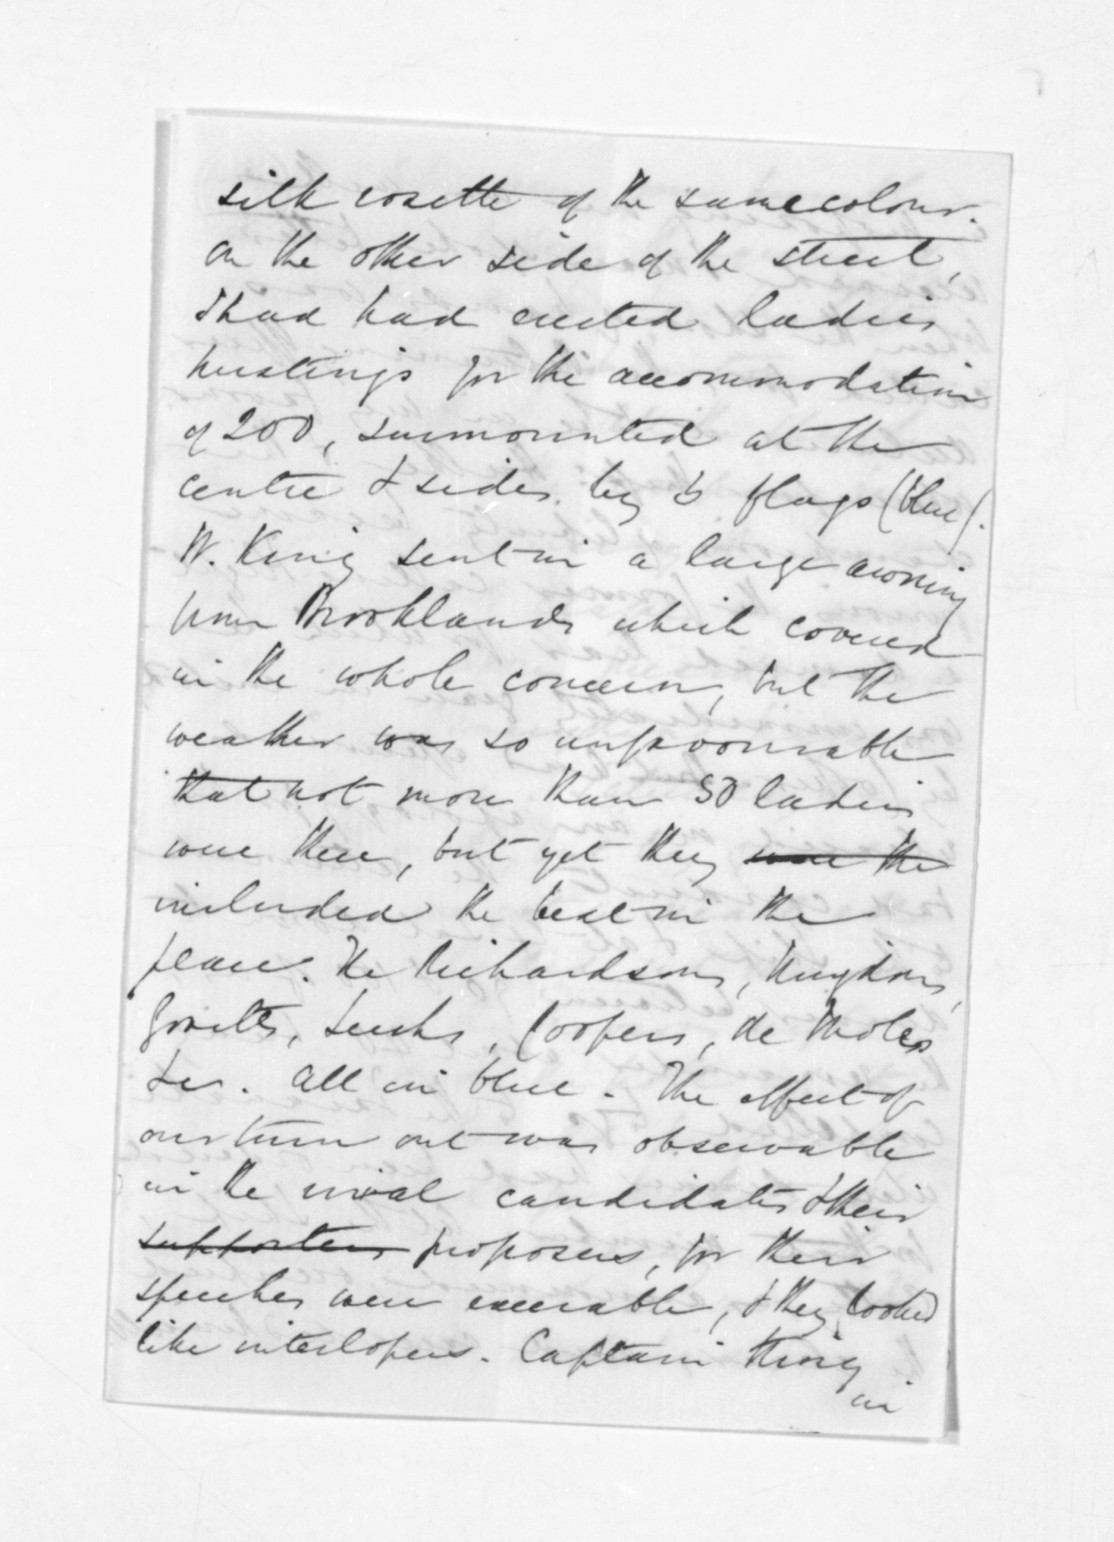 silk rosette of the same colour.
On the other side of the street,
I had had erected ladies
hustings for the accommodation
of 200, surmounted at the
centre & sides by 3 flags (blue).
W. King sent in a large awning
from Brooklands which covered
in the whole concern, but the
weather was so unfavourable
that not more than 50 ladies
were there, but yet they were the
included the best in the
place. The Richardsons,
Govetts, Leechs, Coopers, de Thiolas
&c. All in blue. The effect of
our turn out was observable
in the rival candidates & their
supporters proposers, for their
speeches were execrable, & they looked
like interlopers. Captain King
in